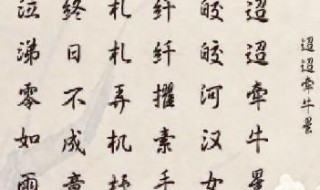 迢迢牵牛星
迢迢牵牛星
皎皎河汉女
纤纤擢素手
札札弄机杼
终日不成章
泣涕零如雨